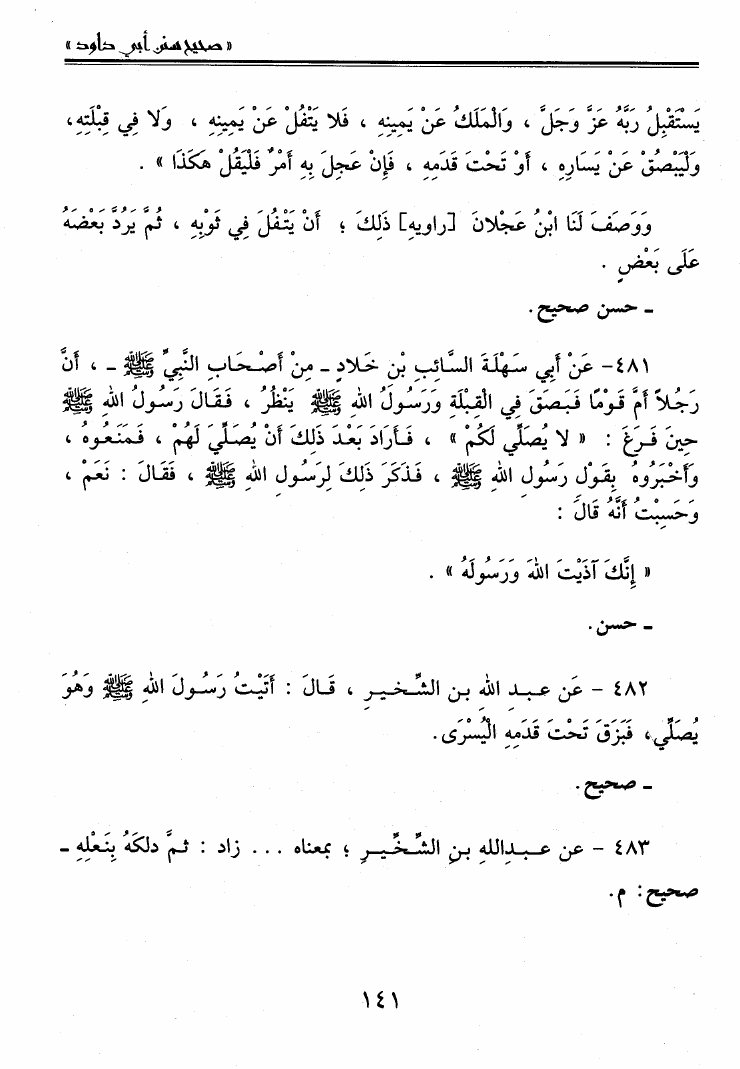 « صحيح سنن أبي داود »
يَسْتَقْبِلُ رَبَّهُ عَزَّ وَجَلَّ ، وَالْمَلَكُ عَنْ يَمِينِهِ ، فَلا يَتْفُلْ عَنْ يَمِينِهِ ، وَلا فِي قِبْلَتِهِ،
وَلْيَبْصُقْ عَنْ يَسَارِهِ ، أَوْ تَحْتَ قَدَمِهِ ، فَإِنْ عَجِلَ بِهِ أَمْرٌ فَلْيَقُلْ هكَذَا » .
وَوَصَفَ لَنَا ابْنُ عَجْلانَ [راويه] ذَلِكَ ؛ أَنْ يَتْفُلَ فِي ثَوْبِهِ ، ثُمَّ يَرُدَّ بَعْضَهُ
عَلَى بَعْضٍ .
ـ حسن صحيح.
٤٨١- عَنْ أَبِي سَهْلَةَ السَّائِبِ بْنِ خَلادٍ ـ مِنْ أَصْحَابِ النَّبِيِّ ﷺ ـ ، أَنَّ
رَجُلاً أَمَّ قَوْمًا فَبَصَقَ فِي الْقِبْلَةِ وَرَسُولُ اللهِ ﷺ يَنْظُرُ ، فَقَالَ رَسُولُ اللهِ ﷺ
حِينَ فَرَغَ : « لا يُصَلِّي لَكُمْ » ، فَأَرَادَ بَعْدَ ذَلِكَ أَنْ يُصَلِّيَ لَهُمْ ، فَمَنَعُوهُ ،
وَأَخْبَرُوهُ بِقَوْلِ رَسُولِ اللهِ ﷺ ، فَذَكَرَ ذَلِكَ لِرَسُولِ اللهِ ﷺ ، فَقَالَ : نَعَمْ ،
وَحَسِبْتُ أَنَّهُ قَالَ :
« إِنَّكَ آذَيْتَ اللهَ وَرَسُولَهُ » .
ـ حسن.
٤٨٢ - عَن عبد اللهِ بن الشِّخيرِ ، قَالَ : أَتَيْتُ رَسُولَ اللهِ ﷺ وَهُوَ
يُصَلِّي، فَبَزَقَ تَحْتَ قَدَمِهِ الْيُسْرَى.
ـ صحيح.
٤٨٣ - عن عبداللهِ بنِ الشِّخِّيرِ ؛ بمعناه ... زاد : ثمَّ دلكَهُ بِنَعْلِهِ ـ
صحيح: م.
١٤١